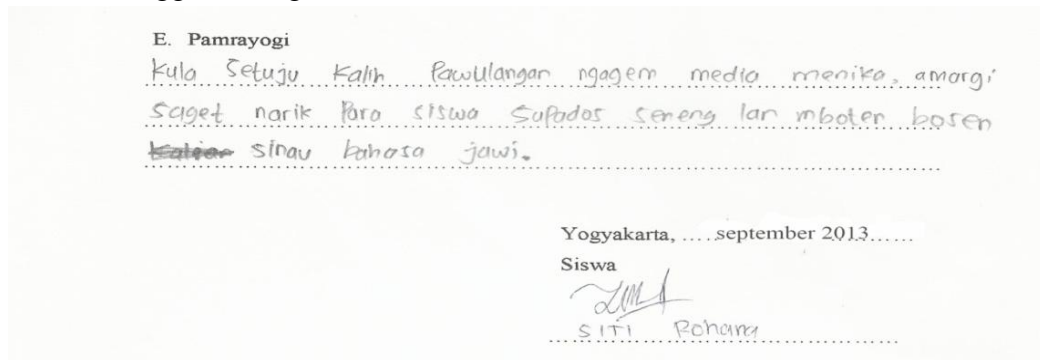 E. Pamrayogi
Kula Setuju Kalih Pawulangan ngagem media menika, amargi
saget narik Para siswa Supados seneng lan mboten bosen
sinau bahasa jawi.
Yogyakarta, ....september 2013......
Siswa
SITI Rohana